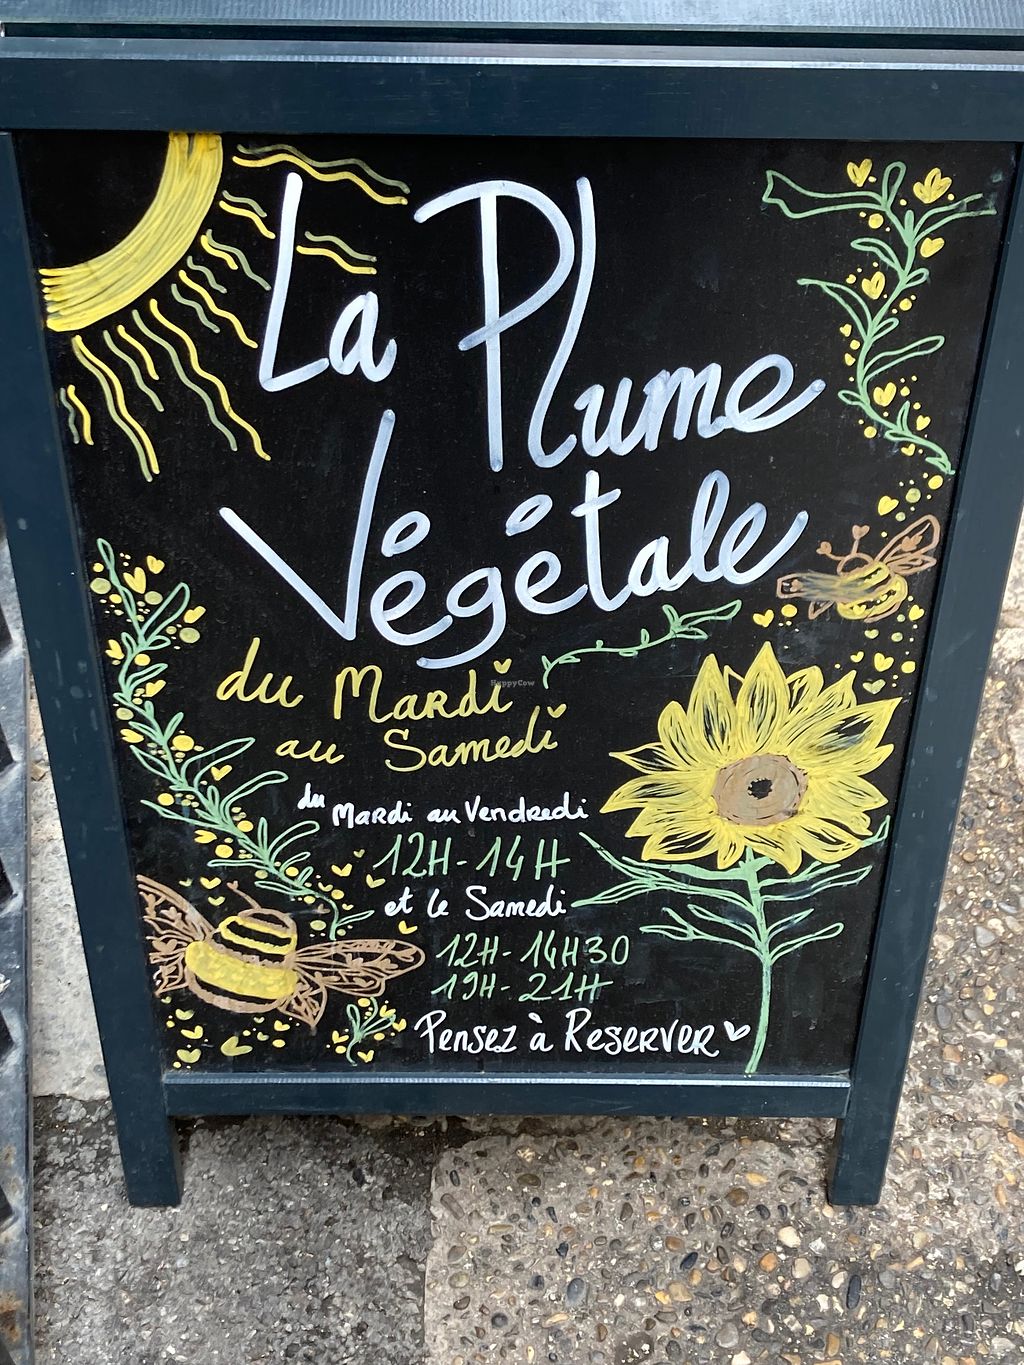 La Plume
Végétale
du Mardi
HappyCow
au Samedi
du Mardi au Vendredi
12H-14H
et le Samedi
12H-14H30
19H-21H
Pensez à Reserver